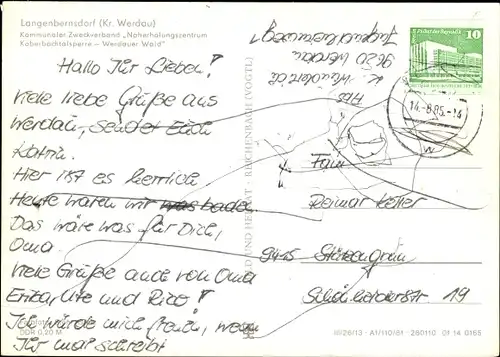 Langenbernsdorf (Kr. Werdau)
Kommunaler Zweckverband „Naherholungszentrum
Koberbachtalsperre – Werdauer Wald"
Hallo Ihr Lieben!
Viele liebe Grüße aus
Werdau, sendet Euch
Katrin.
Hier ist es herrlich
Heute waren wir was baden
Das wäre was für Dich,
Oma.
Viele Grüße auch von Oma
Erika, Ute und Rico!
Ich würde mich freun, wenn
Ihr mal schreibt
DDR 0,20 M
BILD UND HEIMAT · REICHENBACH (VOGTL)
Abs
9620 Werdau
10
14.-8.85.-14
Fam
Reimar
9415 Stützengrün
Schönheiderstr. 19
III/26/13 · A1/110/81 · 260110 01 14 0165